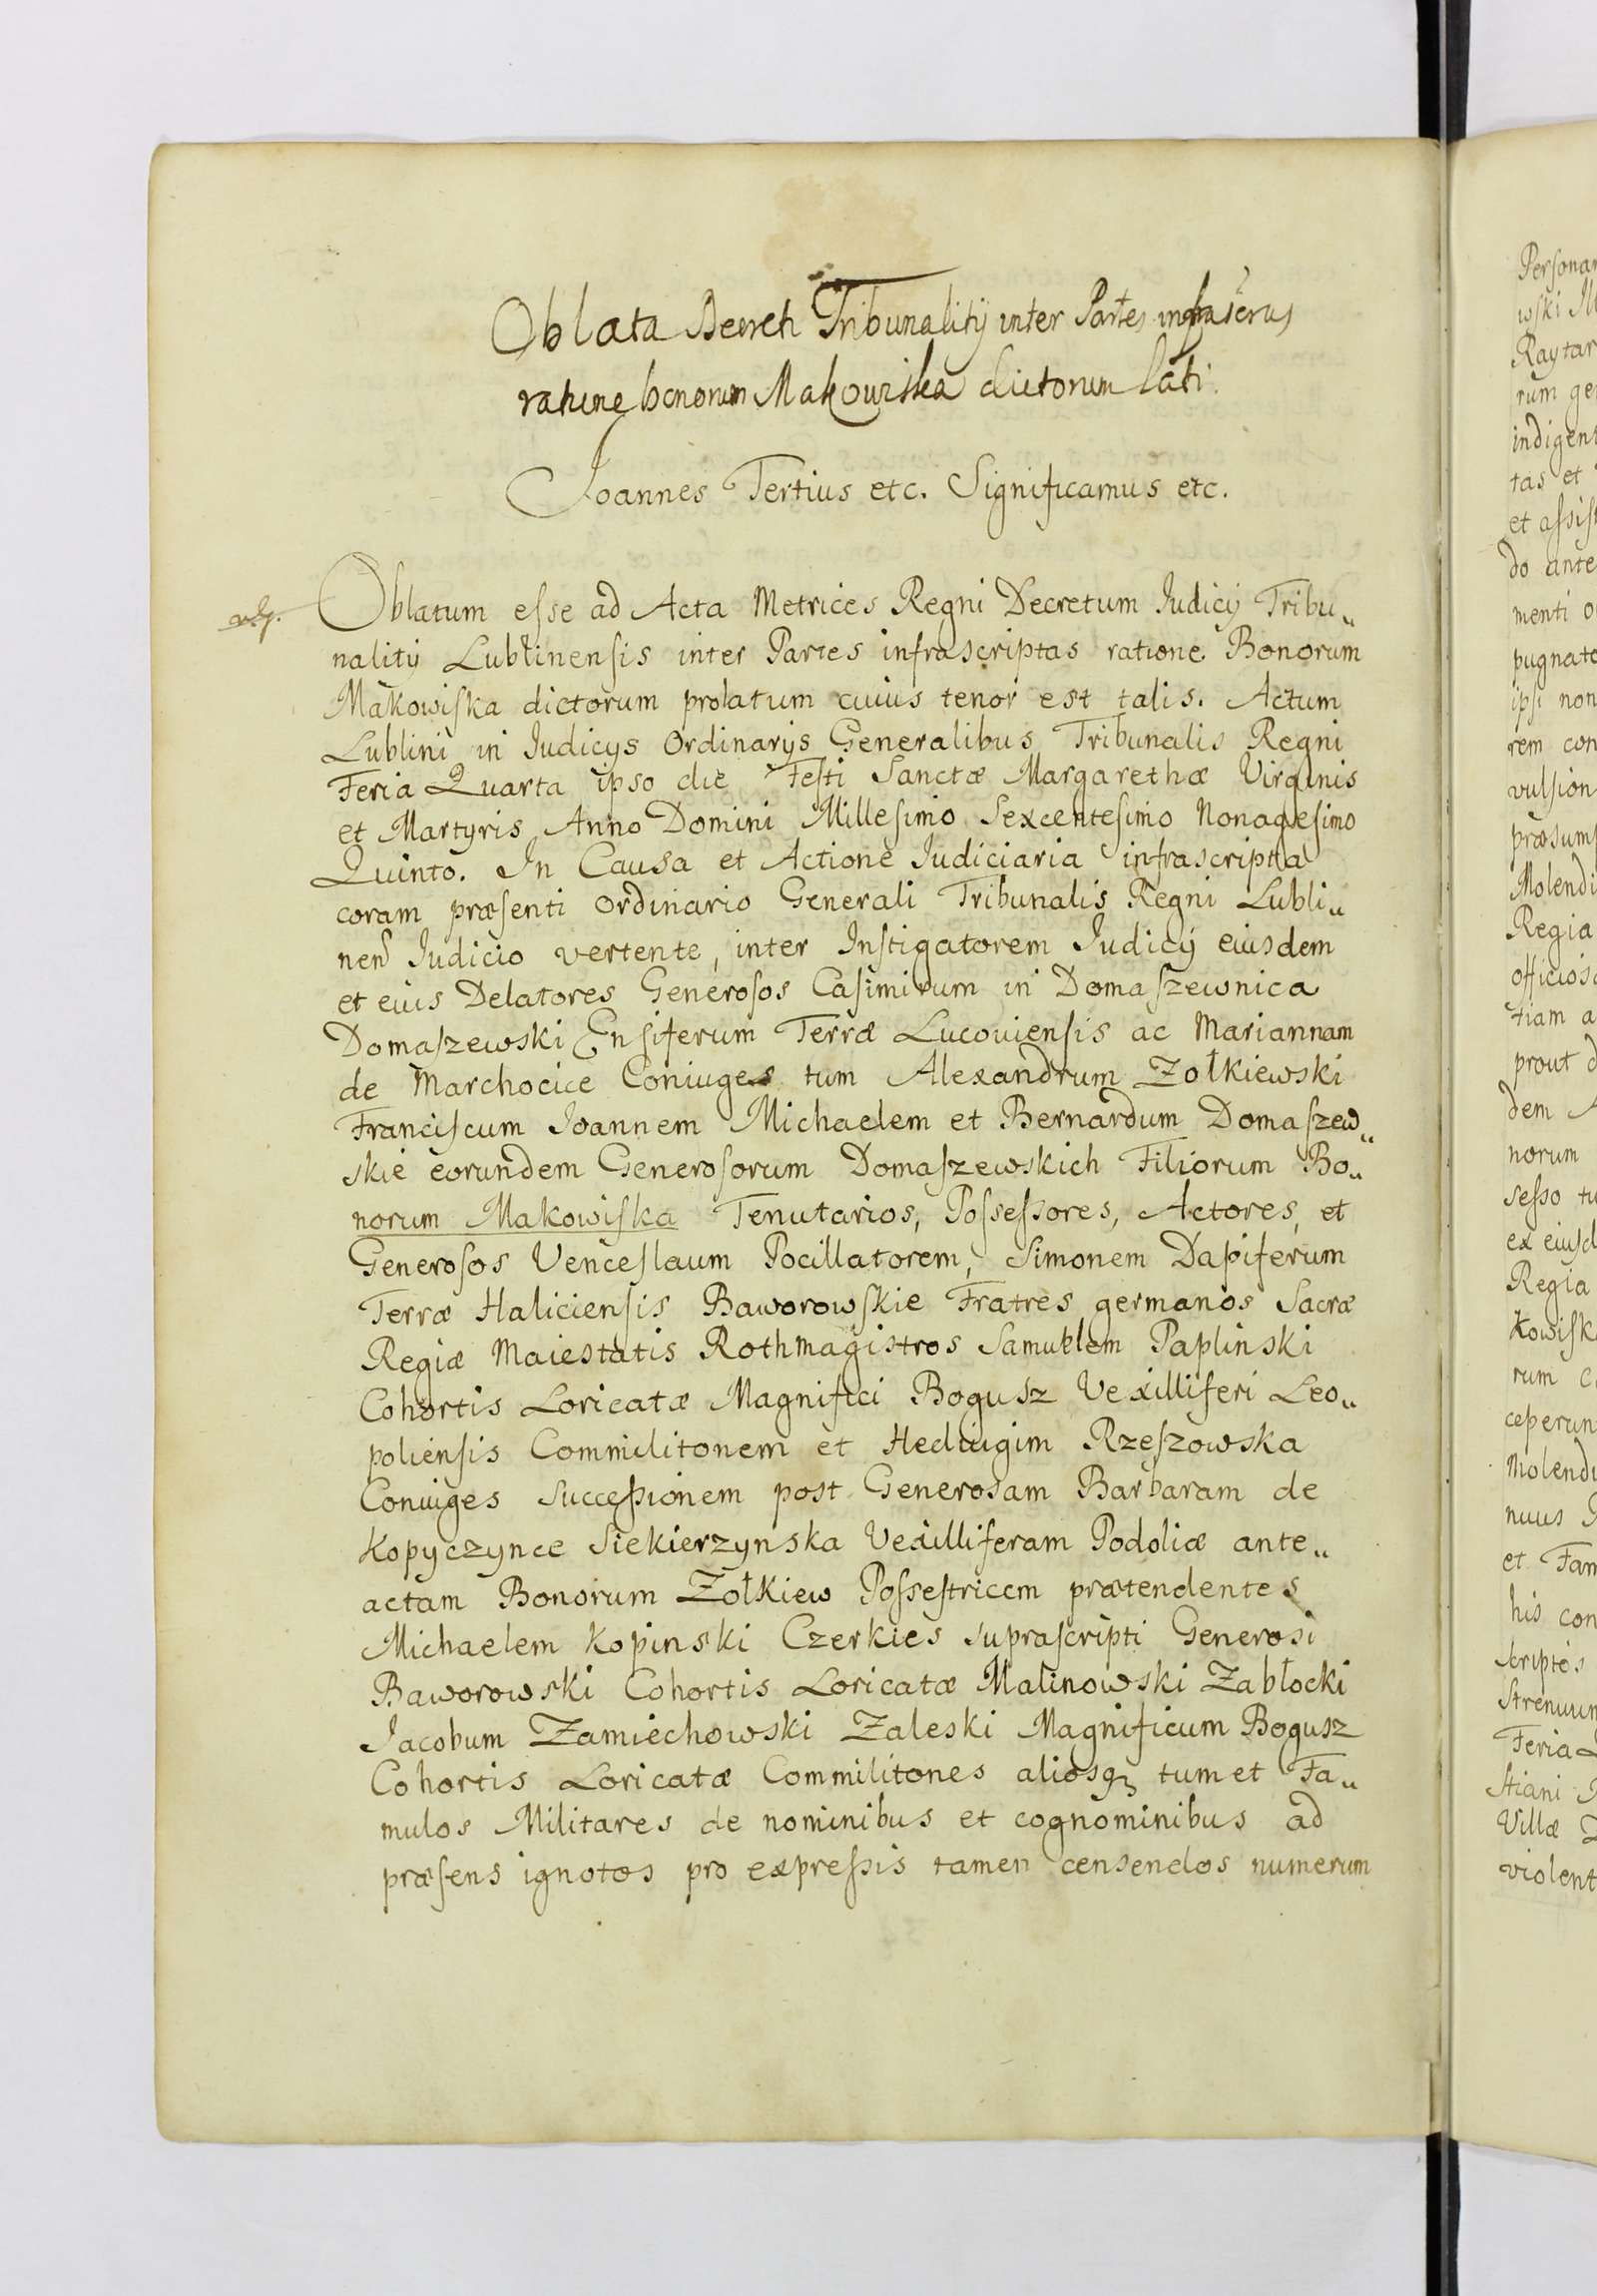 Oblata Decreti Tribunalitÿ inter Partes infrascrias
ratione bonorum Makowiska dictorum lati.
Joannes Tertius etc. Significamus etc.
Oblatum eſse ad Acta Metrices Regni Decretum Iudicÿ Tribu„
nalitÿ Lublinenſis inter Partes infrascriptas ratione Bonorum
Makowiſka dictorum prolatum cuius tenor est talis. Actum
Lublini in Iudicÿs Ordinarÿs Generalibus Tribunalis Regni
Feria Quarta ipso die Feſti Sanctæ Margarethæ Virginis
et Martyris Anno Domini Milleſimo Sexcenteſimo Nonageſimo
Quinto. In Causa et Actione Iudiciaria infrascripta
coram præſenti Ordinario Generali Tribunalis Regni Lubli„
nen Iudicio vertente, inter Inſtigatorem Iudicÿ eiusdem
et eius Delatores Generoſos Caſimirum in Domaſzewnica
Domaſzewski Enſiferum Terræ Lucouienſis ac Mariannam
de Marchocice Coniuges tum Alexandrum Zołkiewski
Franciſcum Joannem Michaelem et Bernardum Domaſzew„
skie eorundem Generoſorum Domaſzewskich Filiorum Bo„
norum Makowiſka Tenutarios, Poſseſsores, Actores, et
Generoſos Venceſlaum Pocillatorem, Simonem Dapiferum
Terræ Halicienſis Baworowſkie Fratres germanos Sacræ
Regiæ Maiestatis Rothmagistros Samuelem Paplinski
Cohortis Loricatæ Magnifici Bogusz Vexilliferi Leo„
polienſis Commilitonem et Hedivigim Rzeſzowska
Coniuges Succeſsionem post Generosam Barbaram de
Kopyczynce Siekierzynska Vexilliferam Podoliæ ante„
actam Bonorum Zołkiew Poſseſtricem prætendentes
Michaelem Kopinski Czerkies supraſcripti Generosi
Baworowski Cohortis Loricatæ Malinowski Zabłocki
Jacobum Zamiechowski Zaleski Magnificum Bogusz
Cohortis Loricatæ Commilitones aliosq3 tum et Fa„
mulos Militares de nominibus et cognominibus ad
præſens ignotos pro expreſsis tamen censendos numerum